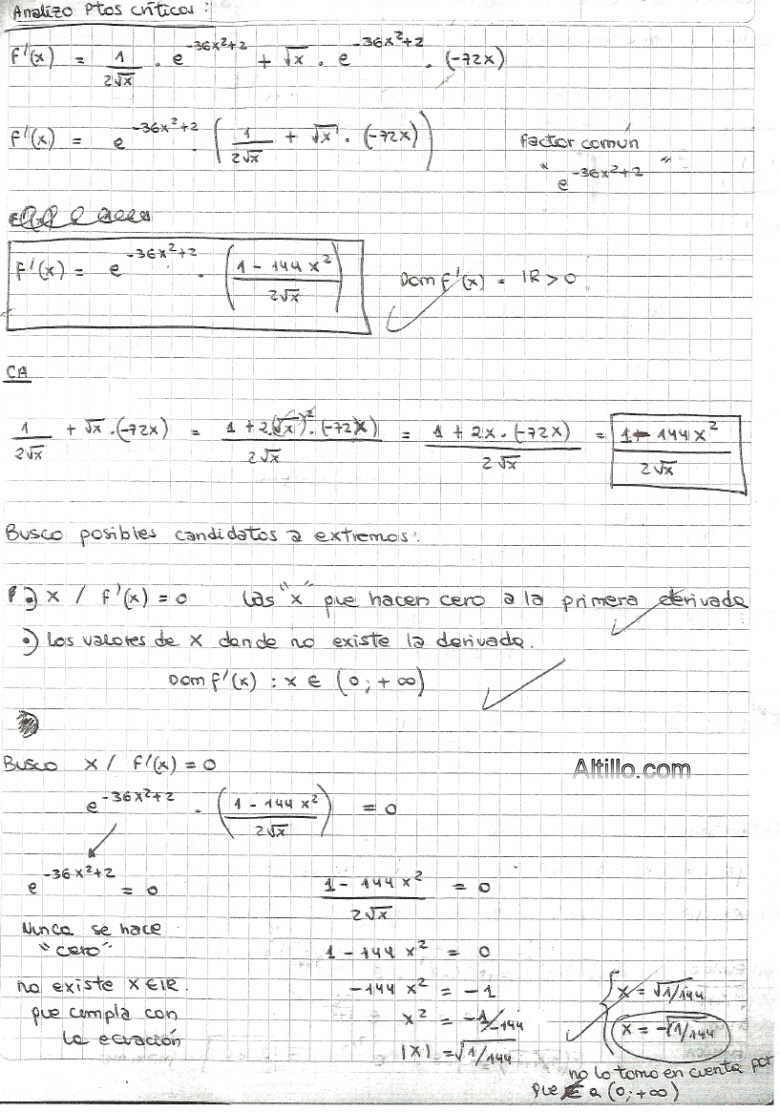 Analizo Ptos críticos:
F'(x) = 1/(2√x) · e^(-36x²+2) + √x · e^(-36x²+2) · (-72x)
F'(x) = e^(-36x²+2) · (1/(2√x) + √x · (-72x))
factor común
" e^(-36x²+2) "
F'(x) = e^(-36x²+2) · ((1 - 144x²)/(2√x))
Dom f'(x) = IR > 0
CA
1/(2√x) + √x · (-72x) = (1 + 2(√x)² · (-72x))/(2√x) = (1 + 2x · (-72x))/(2√x) = (1 - 144x²)/(2√x)
Busco posibles candidatos a extremos:
•) x / f'(x) = 0 Las "x" que hacen cero a la primera derivada
•) Los valores de x donde no existe la derivada.
Dom f'(x) : x ∈ (0; +∞)
Busco x / f'(x) = 0
Altillo.com
e^(-36x²+2) · ((1 - 144x²)/(2√x)) = 0
e^(-36x²+2) = 0
Nunca se hace
"cero"
no existe x ∈ IR
que cumpla con
la ecuación
(1 - 144x²)/(2√x) = 0
1 - 144x² = 0
-144x² = -1
x² = -1/-144
|x| = √1/144
x = √1/144
x = -√1/144
no lo tomo en cuenta por
que ∉ a (0; +∞)